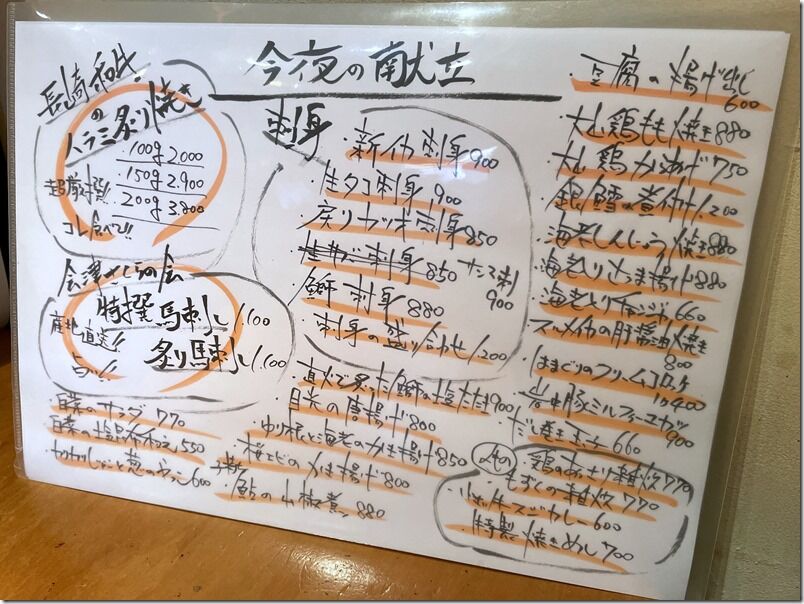 今夜の献立
長崎和牛
の
ハラミ炙り焼き
100g 2,000
150g 2,900
200g 3,800
超厳撰!!
コレ食べて!!
会津さくらの会
特撰 馬刺し 1,100
炙り馬刺し 1,100
産地直送!!
刺身
・新イカ刺身 900
・生タコ刺身 900
・戻りカツオ刺身 850
刺身 850
900
・鰤刺身 880
・刺身の盛り合わせ 1,200
・白菜のサラダ 770
・白菜の塩昆布和え 550
600
・直火で炙った鰤の塩たたき 900
・目光の唐揚げ 800
・ゆり根と海老のかき揚げ 850
・桜エビのかき揚げ 800
・鮎の山椒煮 880
・豆腐の揚げ出し
600
・大山鶏もも焼き 880
・大山鶏から揚げ 750
・銀鱈の煮付け 1,200
・海老しんじょう焼き 880
・海老しんじょう揚げ 880
・海老とりチャンジャ 660
・スルメイカの肝醤油焼き
800
・はまぐりのクリームコロッケ
1ヶ400
・岩中豚ミルフィーユカツ
900
・だし巻き玉子 660
〆もの
・鶏のあっさり雑炊 770
・もずくの雑炊 770
・牛スジカレー 600
・特製焼きめし 700